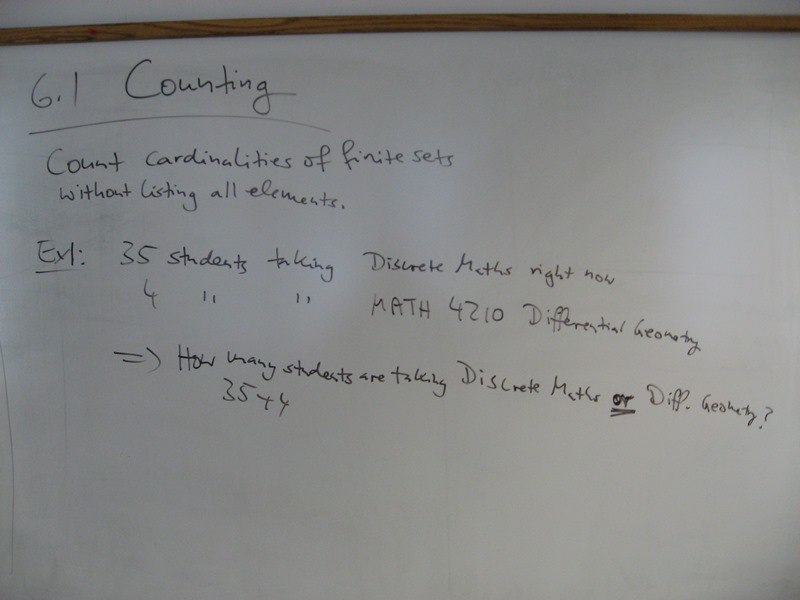 6.1 Counting
Count cardinalities of finite sets
without listing all elements.
Ex1: 35 students taking Discrete Maths right now
4 " " MATH 4210 Differential Geometry
=> How many students are taking Discrete Maths or Diff. Geometry?
35+4